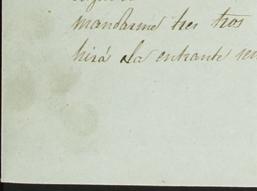 mandarme tres tros
hirá la entrante